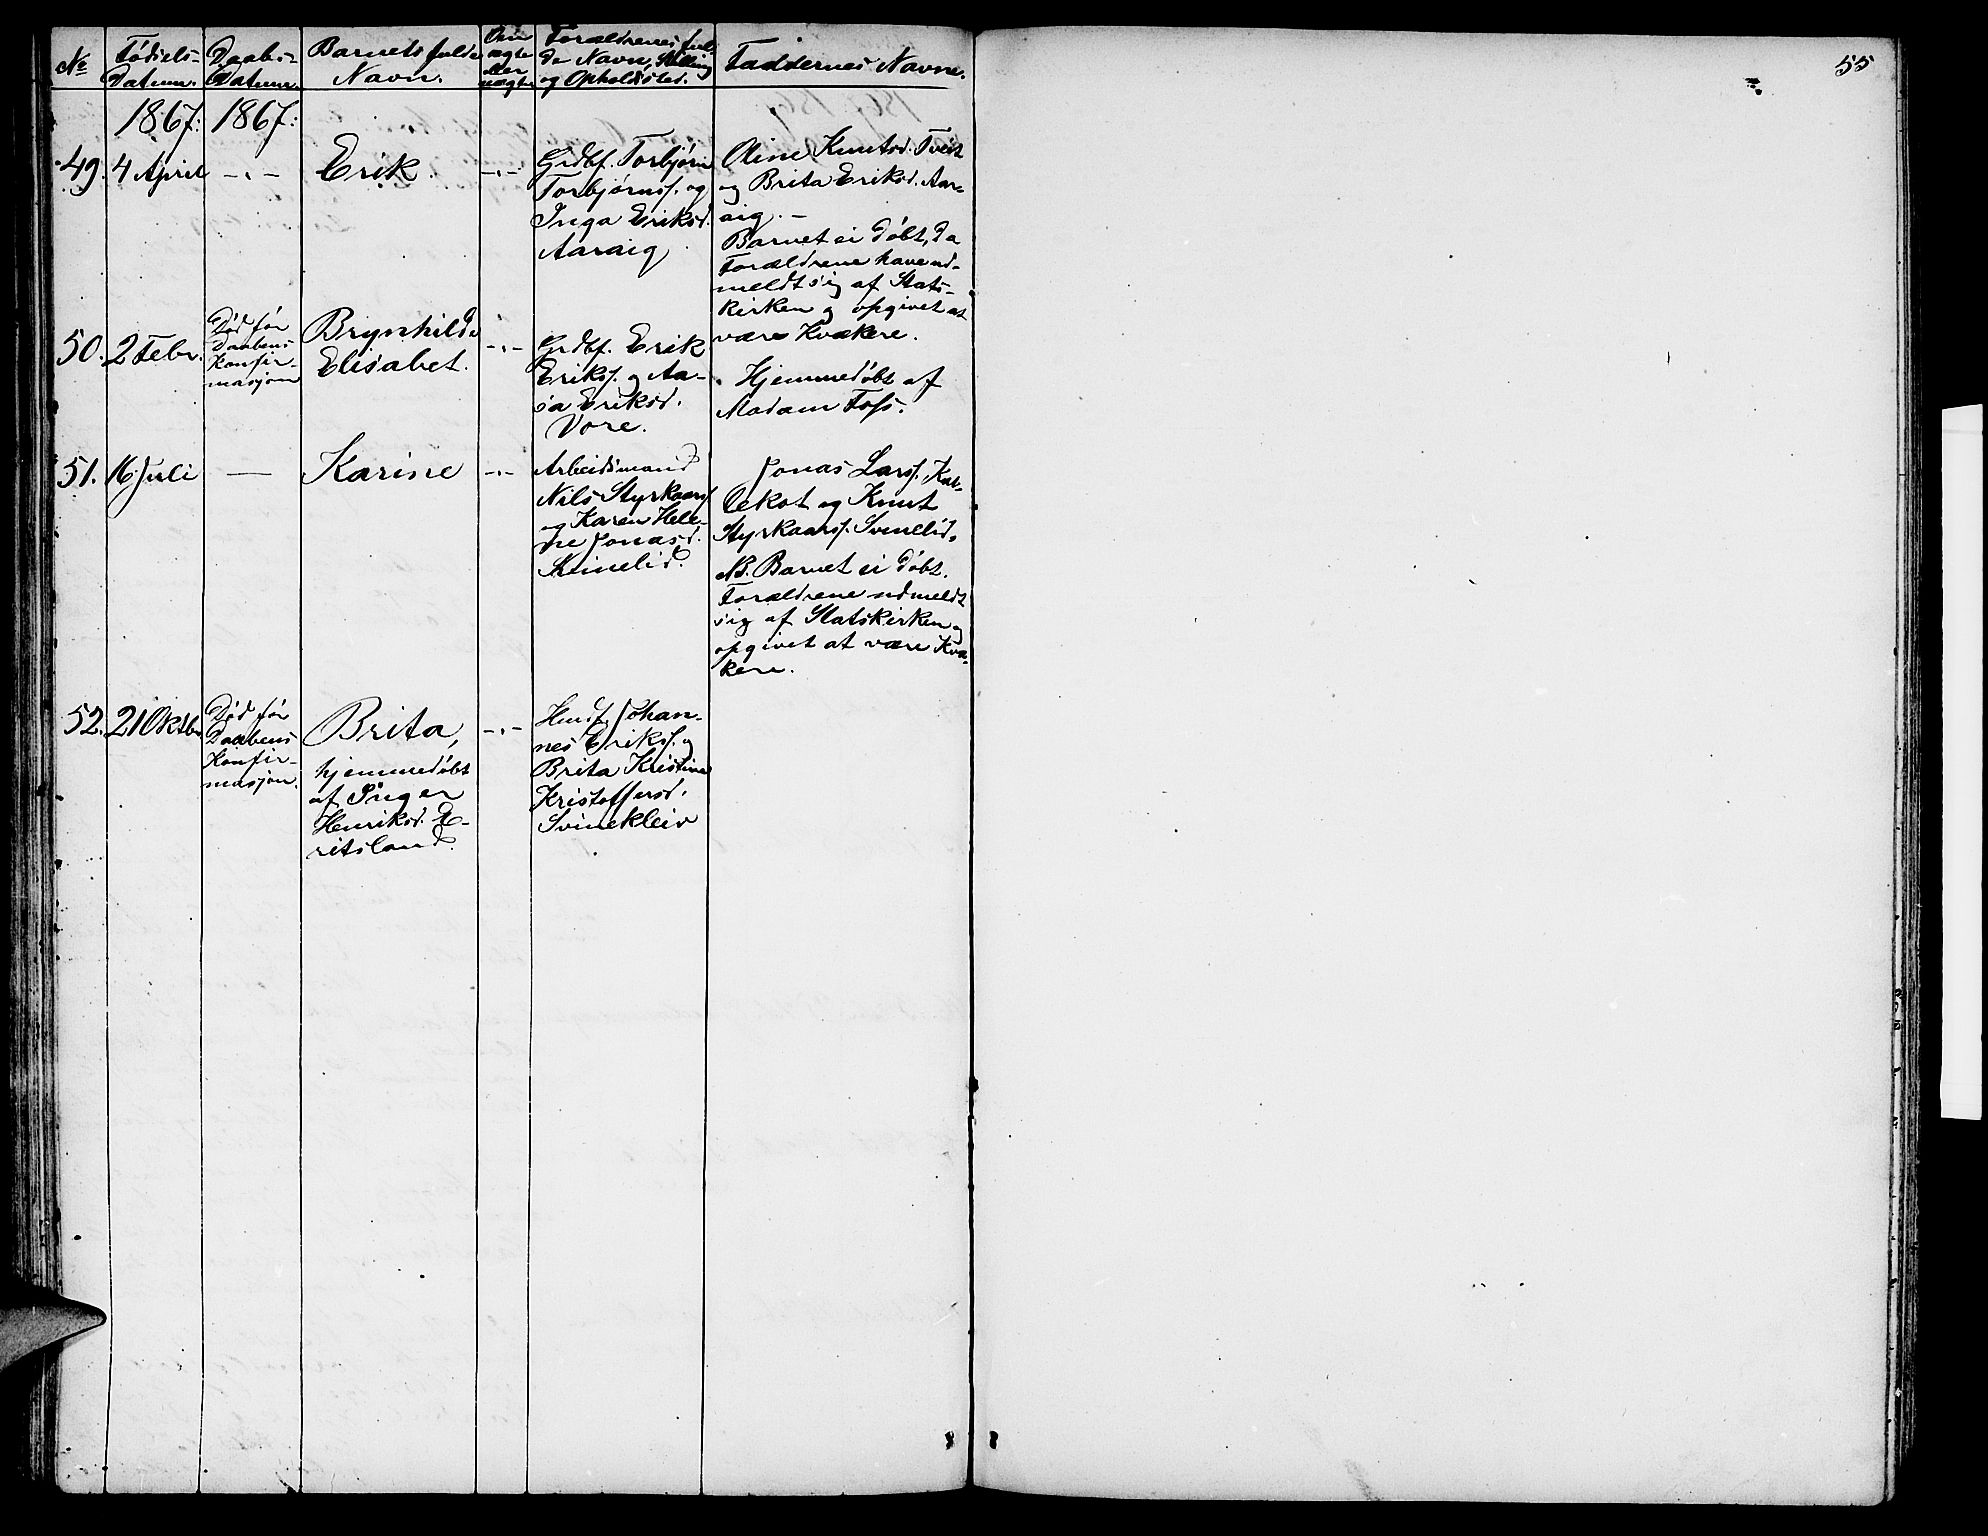 55
No
Fødsels-
Datum.
Daabs-
Datum.
Barnets fulde
Navn.
Om
ægte
eller
uægte
Forældrenes ful-
de Navn, Stilling
og Opholdssted.
Faddernes Navne.
1867: 1867:
49. 4 April -.- Erik. -.-
Grdbf. Torbjørn
Torbjørnss. og
Inga Eriksd.
Aaraig
Oline Knutsd. Tveit
og Brita Eriksd. Aar-
aig. -
Barnet ei døbt, da
Forældrene have ud-
meldt sig af Stats-
kirken og opgivet at
være Kvækere.
50. 2 Febr.
Død før
Daabens
Konfir-
masjon
Brynhilde
Elisabet.
-.-
Grdbf. Erik
Erikss. og Aa-
sa Eriksd.
Vore.
Hjemmedøbt af
Madam Foss.
51. 16 Juli - Karine -.-
Arbeidsmand
Nils Styrkaarss.
og Karen Hele-
ne Jonasd.
Jonas Larss.
og Knut
Styrkaarss. Svinelid.
NB. Barnet ei døbt.
Forældrene udmeldt
sig af Statskirken og
opgivet at være Kvæ-
kere.
52. 21 Oktbr.
Død før
Daabens
Konfir-
masjon.
Brita,
hjemmedøbt
af Inger
Henriksd. E-
ritsland.
-.-
Husf. Johan-
nes Erikss. og
Brita Kristine
Kristoffersd.
Svinekleiv